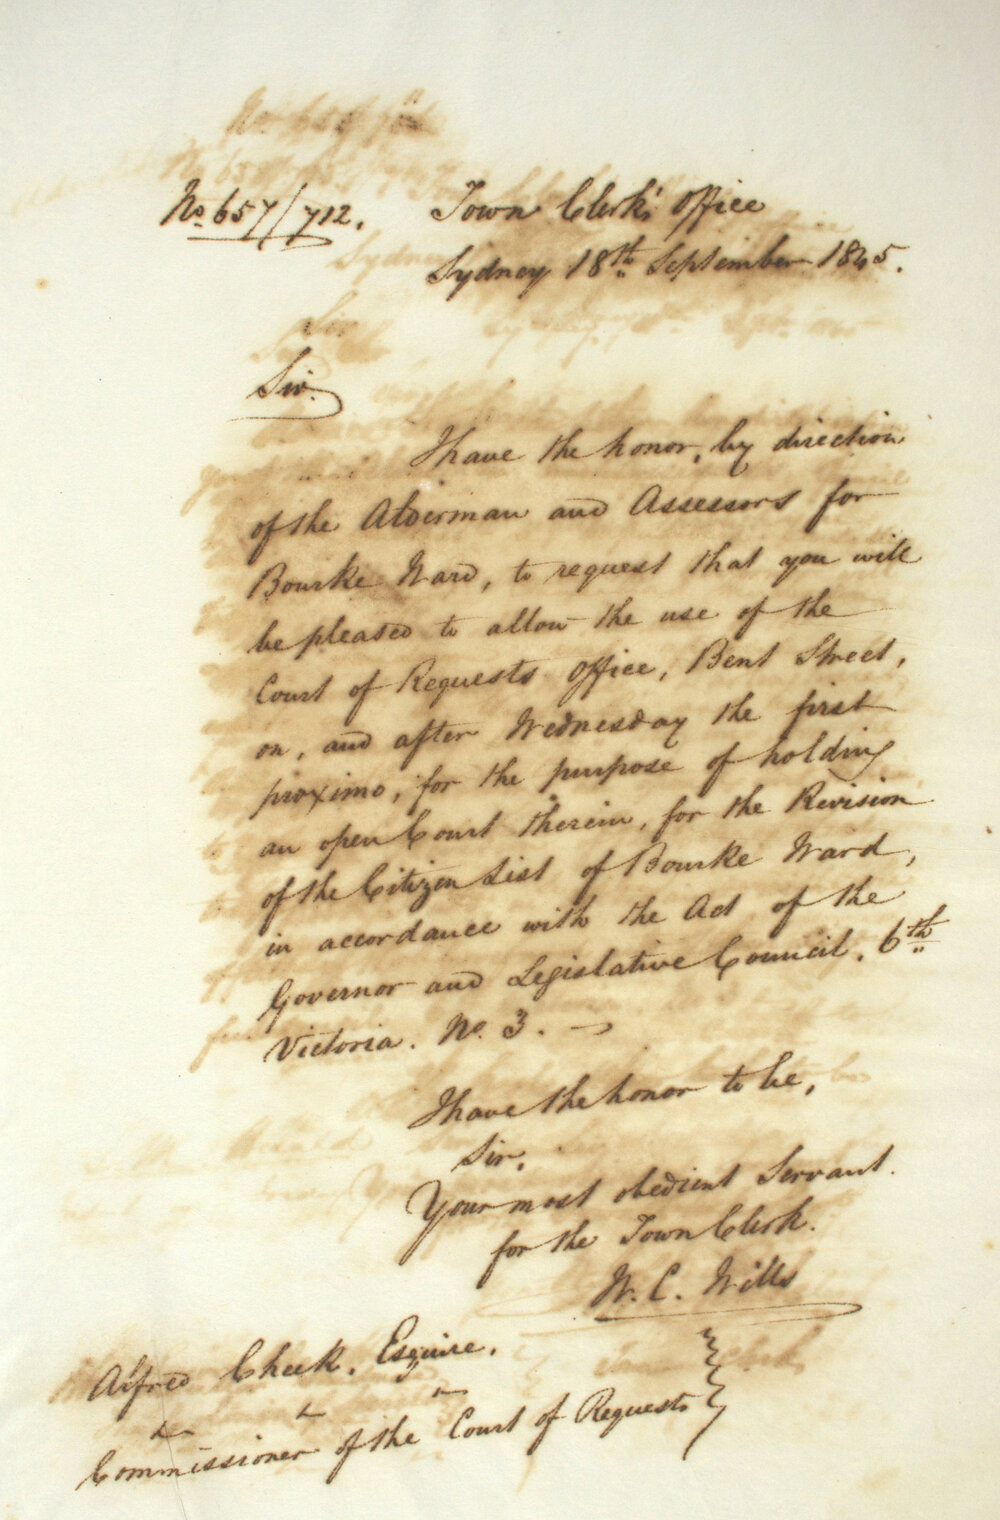 No. 657/712.
Town Clerk's Office
Sydney 18th September 1845.
Sir.
I have the honor, by direction
of the Alderman and Assessors for
Bourke Ward, to request that you will
be pleased to allow the use of the
Court of Requests Office, Bent Street,
on, and after Wednesday the first
proximo, for the purpose of holding
an open Court therein, for the Revision
of the Citizen List of Bourke Ward,
in accordance with the Act of the
Governor and Legislative Council. 6th
Victoria. No. 3.
I have the honor to be,
Sir,
Your most obedient Servant.
for the Town Clerk.
W. C. Wills
Alfred Cheek. Esquire.
Commissioner of the Court of Requests